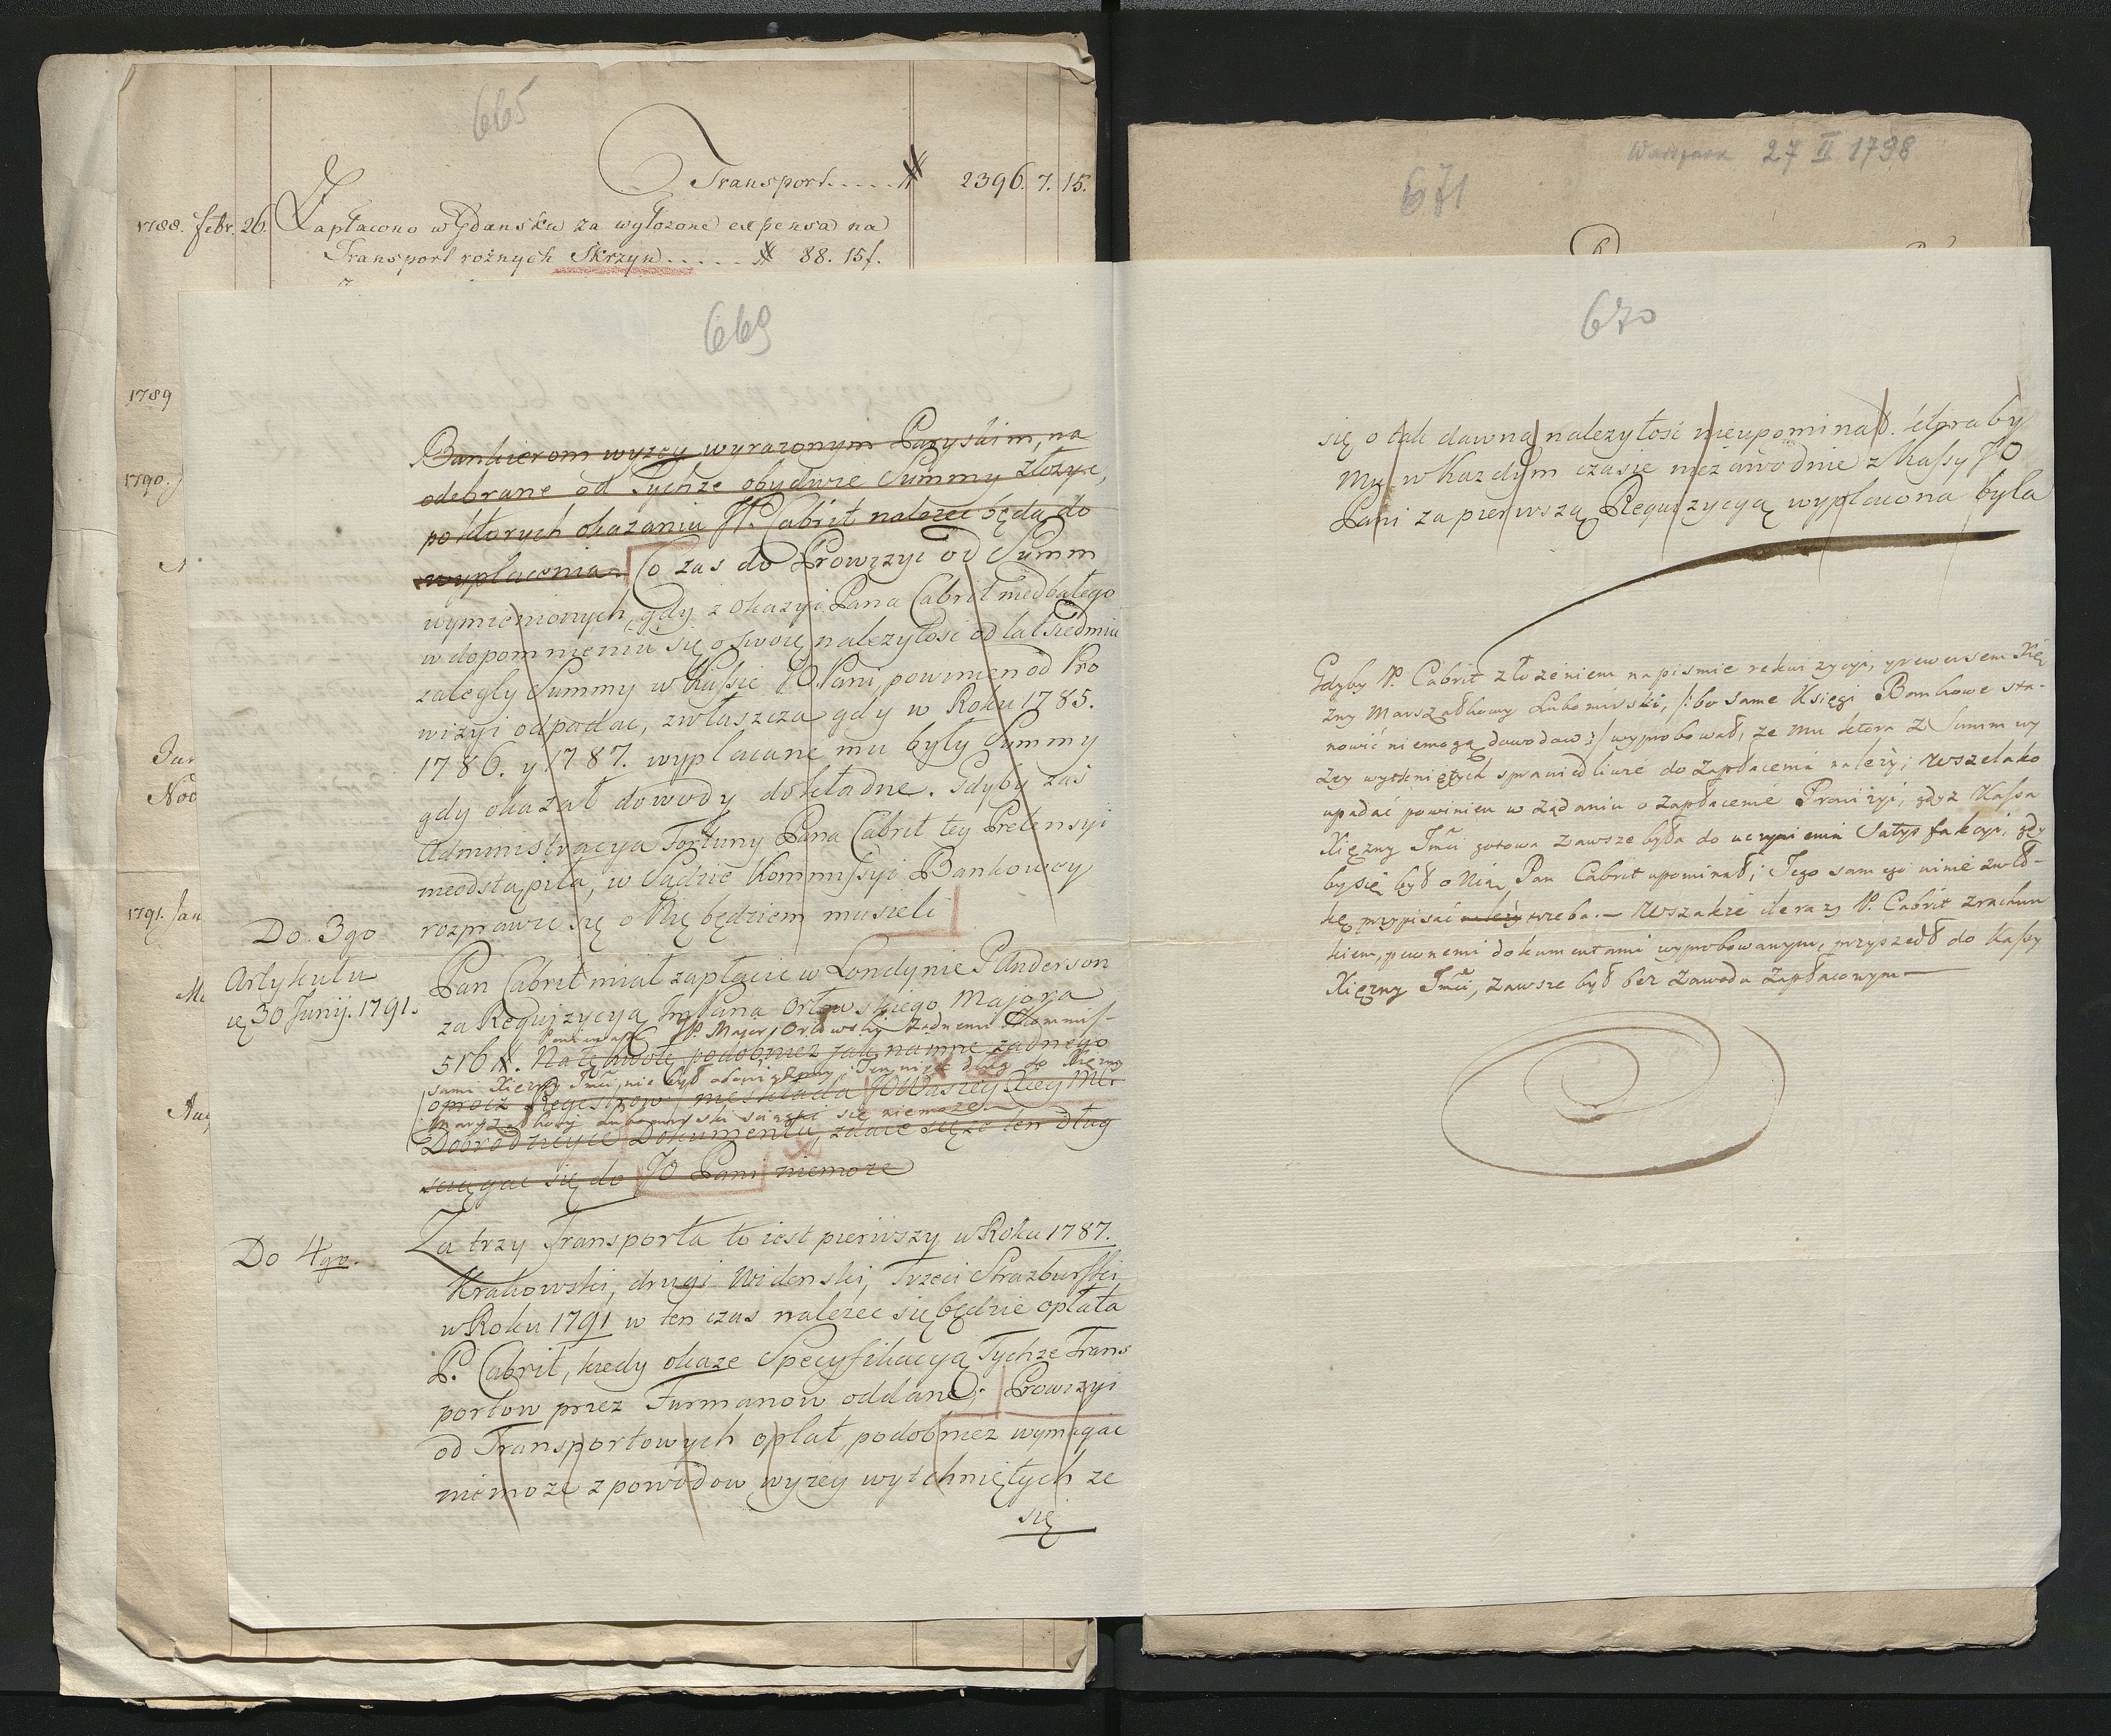 665
Transport..... # 2396. 7. 15.
1788. febr. 26. Zapłacono w Gdansku za wyłozone expensa na
Transport roznych Skrzyn ..... # 88. 15f.
1789
1790. J
Jun
Nov
1791. Jan
Ma
Aug
669
Bankierom wyzey wyrazonym Paryskim, na
odebrane od Tychze obydwie Summy złozyc,
po ktorych okazaniu JP. Cabrit nalezec będą do
wypłacenia. Co zas do Prowizyi od Summ
wymienionych, gdy z okazyi Pana Cabrit niedbałego
w dopomnieniu się o swoię nalezytosc od lat siedmiu
zaległy Summy w Kassie JO. Pani, powinien od Pro
wizyi odpadac, zwłaszcza gdy w Roku 1785.
1786. y 1787. wypłacane mu były Summy
gdy okazał dowody dokładne. Gdyby zas
Administracya Fortuny Pana Cabrit tey Pretensyi
nieodstąpiła, w Sądzie Kommissyi Bankowey
rozprawic się o Nię będziem musieli
Do 3go
Artykułu
ię 30 Junij. 1791.
Pan Cabrit miał zapłacic w Londynie P. Anderson
za Requizycyą Jm Pana Orłowskiego Majora
Poniewasz JP. Major Orłowski Zadnemi Kommis-
516 #. Na tę kwotę podobniez jak na inne zadnego
sami Xiezny Jmci, nie był obowiązany; Tenwięc dług do Xiezny
oprocz Regestrow nieskłada JO Waszey Xcey Mci
Marszałkowy Lubomirski sciągać się niemoze
Dobrodzieyce Dokumentu, zdaie się ze ten dług
sciągac się do JO Pani niemoze
Do 4go.
Za trzy Transporta to iest pierwszy w Roku 1787.
Krakowski, drugi Widenski, Trzeci Strazburski
w Roku 1791 w ten czas nalezec się będzie opłata
P. Cabrit, kiedy okaze Specyfikacyą Tychze Trans
portow przez Furmanow oddane; Prowizyi
od Transportowych opłat, podobniez wymagac
niemoze z powodow wyzey wytchniętych ze
się
Warszawa 27 II 1798
671
670
się o tak dawną nalezytosc nieupominał. ktoraby
Mu w kazdym czasie niezawodnie z Kassy JO
Pani za pierwszą Requizycyą wypłacona była
Gdyby P. Cabrit złozeniem na pismie rekwizycyi, y rewersem Xię
zny Marszałkowy Lubomirski, /: bo same Księgi Bankowe sta-
nowić niemogą dowodow :/ wyprobował, ze mu ktora z Summ wy
zey wytkniętych sprawiedliwie do Zapłacenia należy; Wszelako
upadać powinien w ządaniu o Zapłacenie Prowizyi, gdyz Kassa
Xięzny Jmci gotowa Zawsze była do uczynienia Satysfakcyi, gdy
by się był o Nią Pan Cabrit upominał; Jego samego winie zwło-
kę przypisać należy trzeba. — Wszakze ile razy P. Cabrit z rachun
kiem, pewnemi dokumentami wyprobowanym, przyszedł do Kassy
Xięzny Jmci, zawsze był bez Zawodu Zapłaconym —